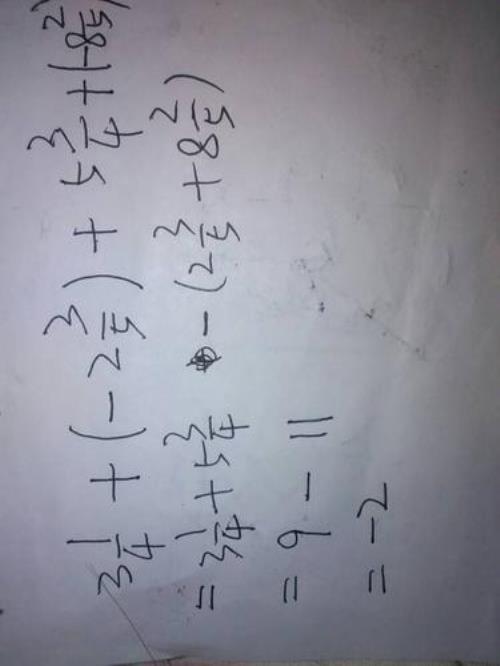 3 1/4 + (-2 3/5) + 5 3/4 + (-8 2/5)
= 3 1/4 + 5 3/4 - (2 3/5 + 8 2/5)
= 9 - 11
= -2